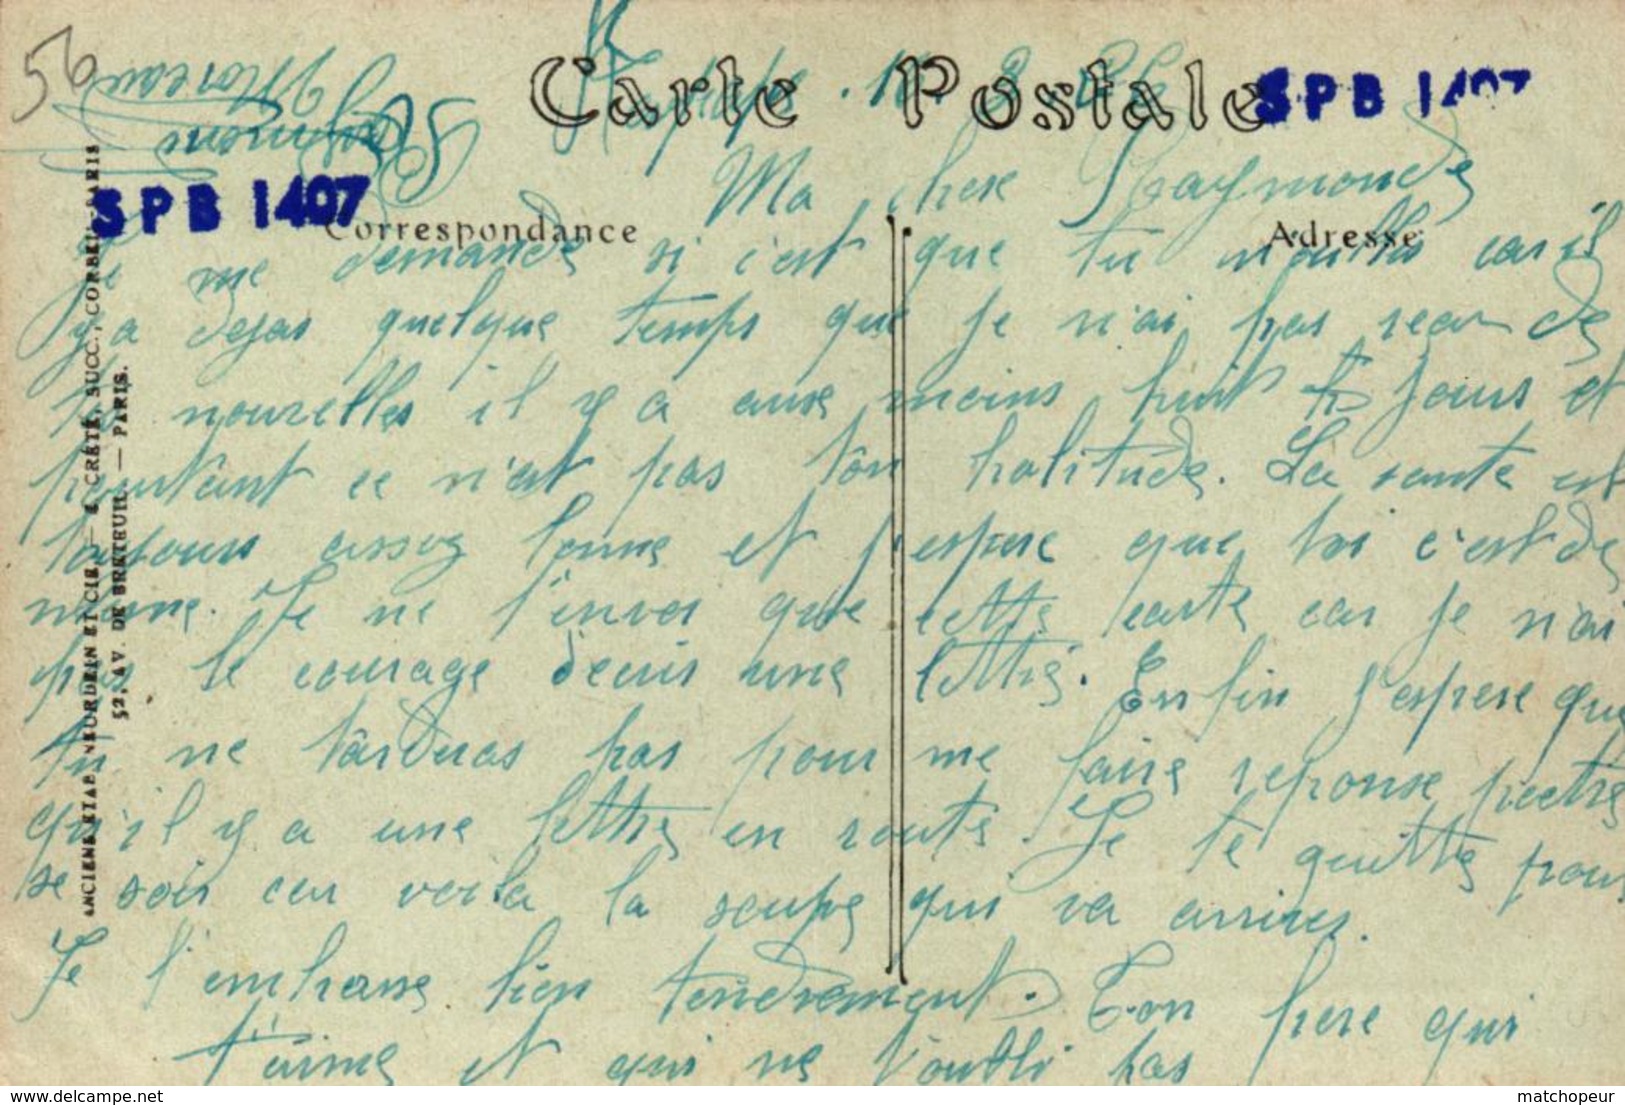 56
Carte Postale
SPB 1407
Raymond
Moreau
SPB 1407
Correspondance
Adresse
Ma chere Raymonde
Je me demande si c'est que tu m'oublis car il
y a dejas quelque temps que je n'ai pas recu de
tes nouvelles il y a aux moins huit jours et
pourtant ce n'est pas ton habitude. La sante est
toujours assez bonne et j'espere que toi c'est de
meme. Je ne t'envoi que cette carte car je n'ai
pas le courage decrir une lettre. Enfin j'espere que
tu ne tarderas pas pour me faire reponse peetre
qu'il y a une lettre en route. Je te quitte pour
se soir car voila la soupe qui va arriver.
Je t'embrasse bien tendrement. Ton pere qui
t'aime et qui ne t'oubli pas
ANCIENS ETAB. NEURDEIN ET CIE. — E. CRÉTÉ, SUCC., CORBEIL-PARIS
52, AV. DE BRETEUIL — PARIS.
www.delcampe.net
matchopeur